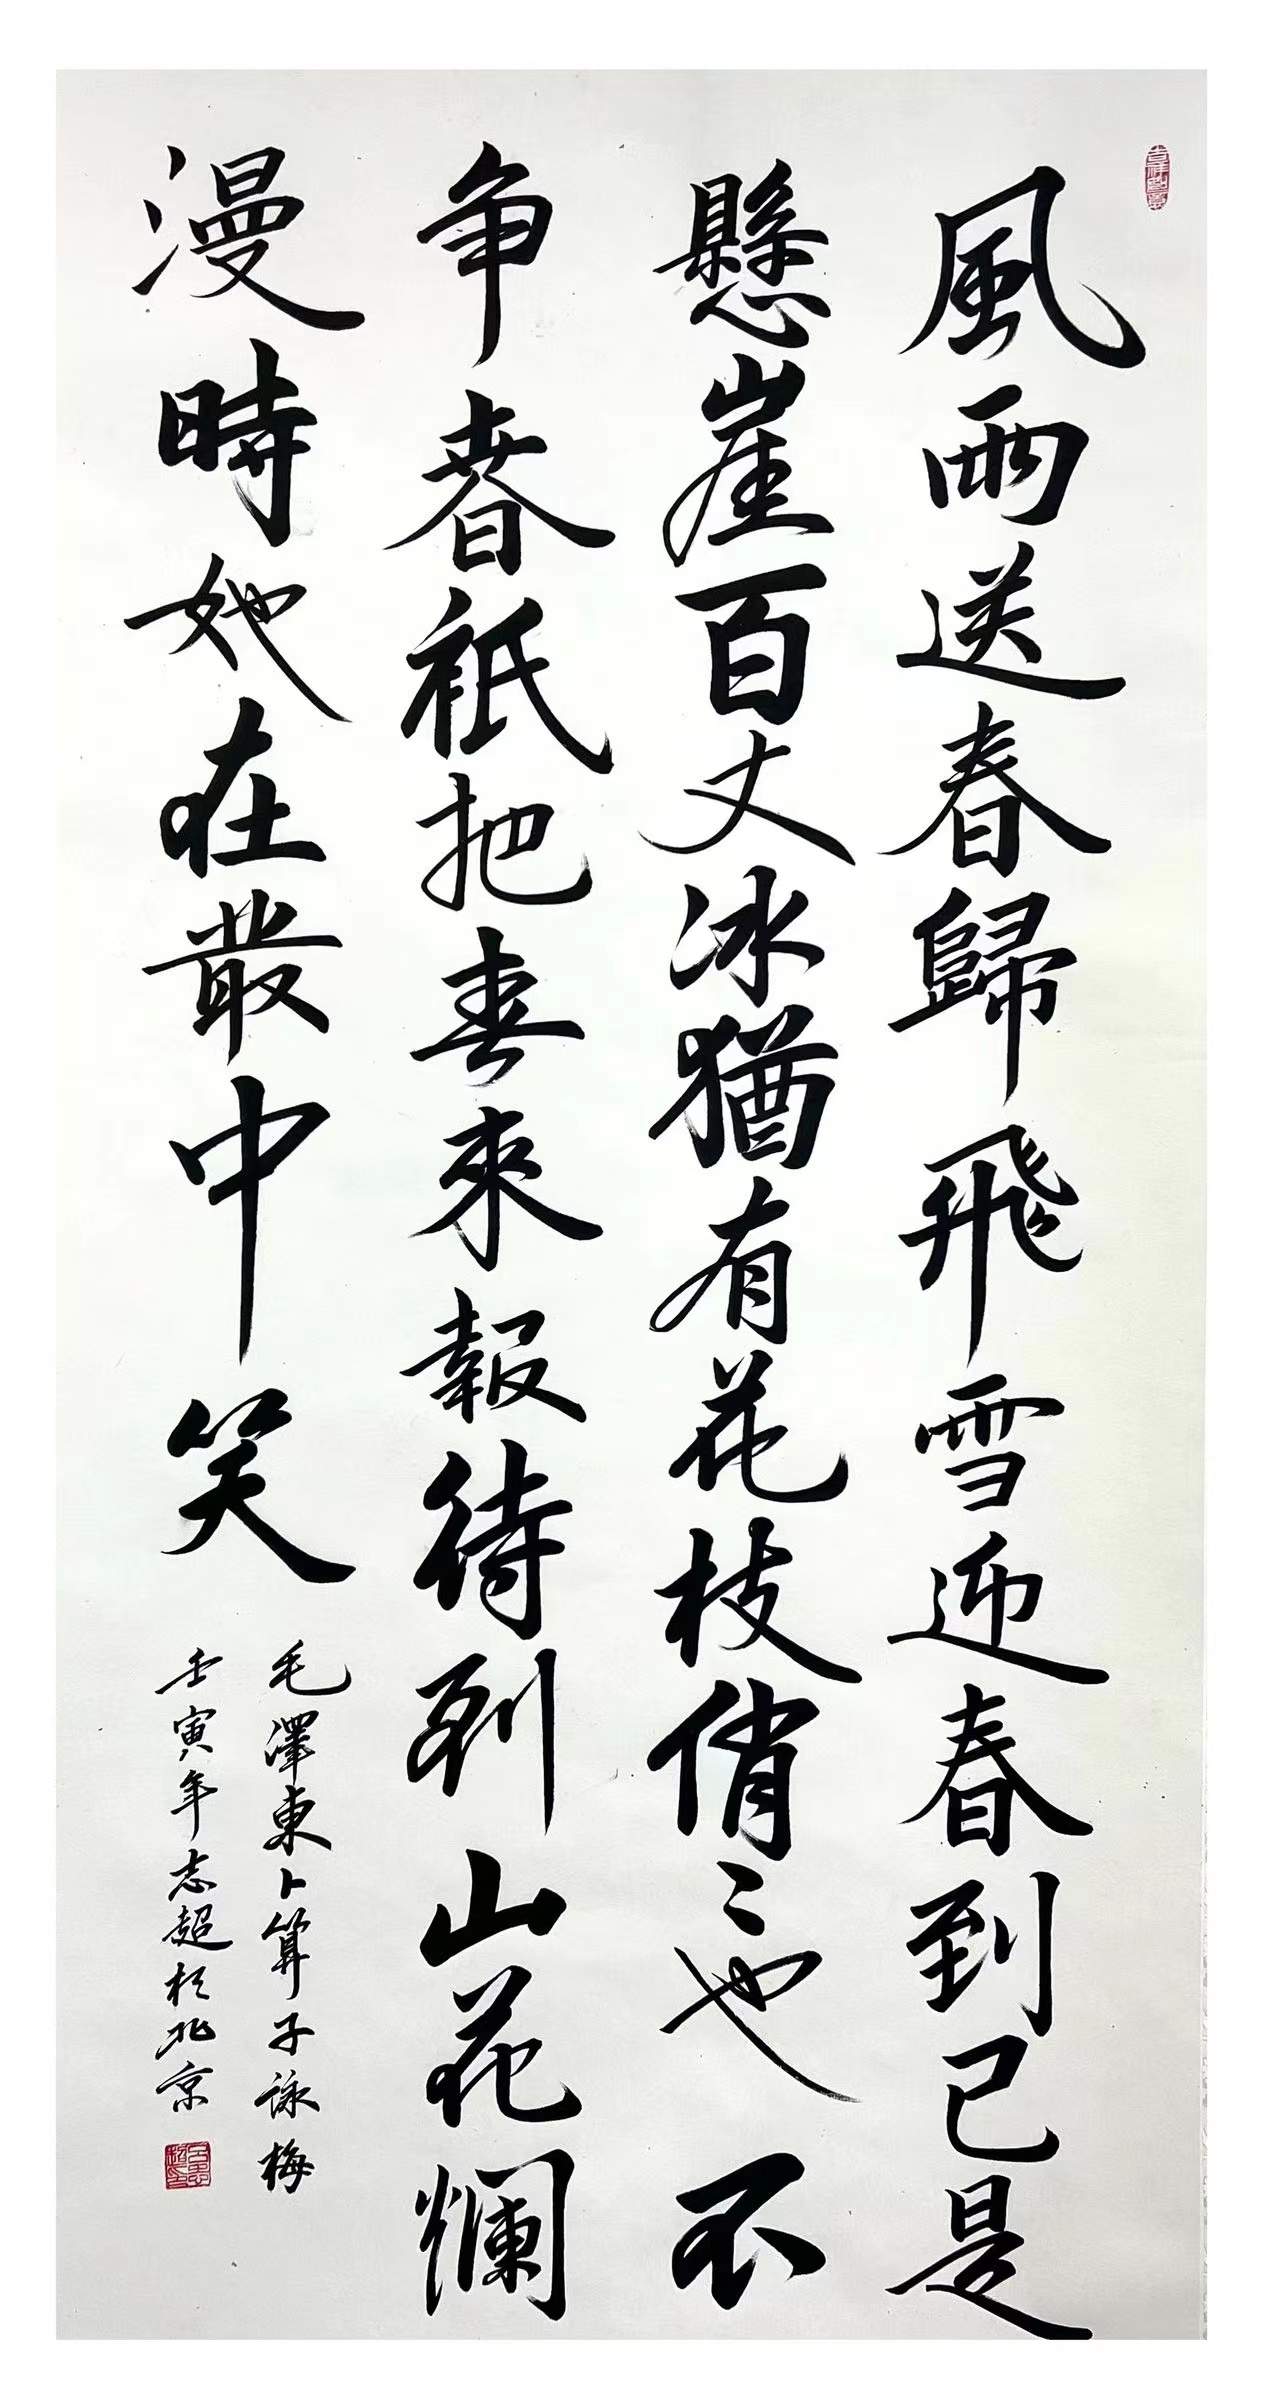 風雨送春歸飛雪迎春到已是
懸崖百丈冰猶有花枝俏〻也不
争春祇把春來報待到山花爛
漫時她在叢中笑
毛澤東卜算子詠梅
壬寅年志超於北京